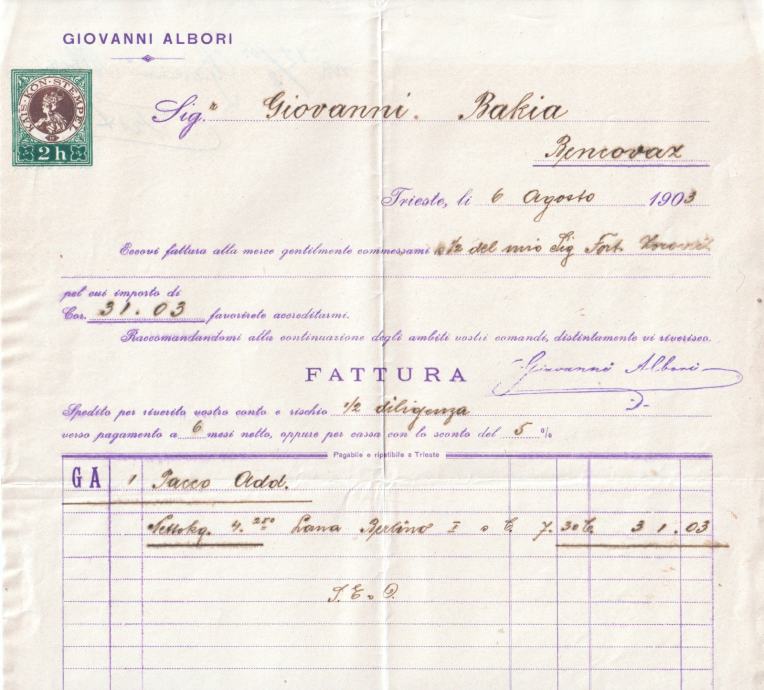 GIOVANNI ALBORI
KAIS·KÖN·STEMPEL
2 h
Sig.r Giovanni. Bakia
Bencovaz
Trieste, li 6 Agosto 1903
Eccovi fattura alla merce gentilmente commessami a 1/2 del mio Sig Fort.
pel cui importo di
Cor. 31.03 favorirete accreditarmi.
Raccomandandomi alla continuazione degli ambiti vostri comandi, distintamente vi riverisco.
FATTURA
Giovanni Albori
Spedito per riverito vostro conto e rischio 1/2 diligenza
verso pagamento a 6 mesi netto, oppure per cassa con lo sconto del 5 %
Pagabile e ripetibile a Trieste
GA 1 Pacco Add.
Nettokg. 4.250 Lana Berlino I a C 7.30 C. 31.03
S. E. O.